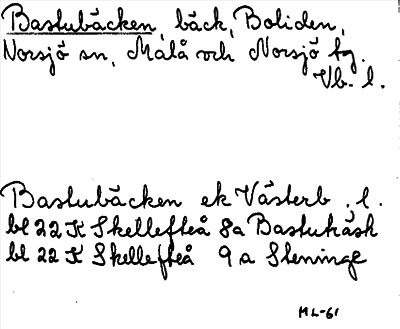 Bastubäcken, bäck, Boliden,
Norsjö sn, Malå och Norsjö tg.
Vb. l.
Bastubäcken ek Västerb. l.
bl 22 K Skellefteå 8a Bastukåsk
bl 22 K Skellefteå 9a Steninge
ML-61